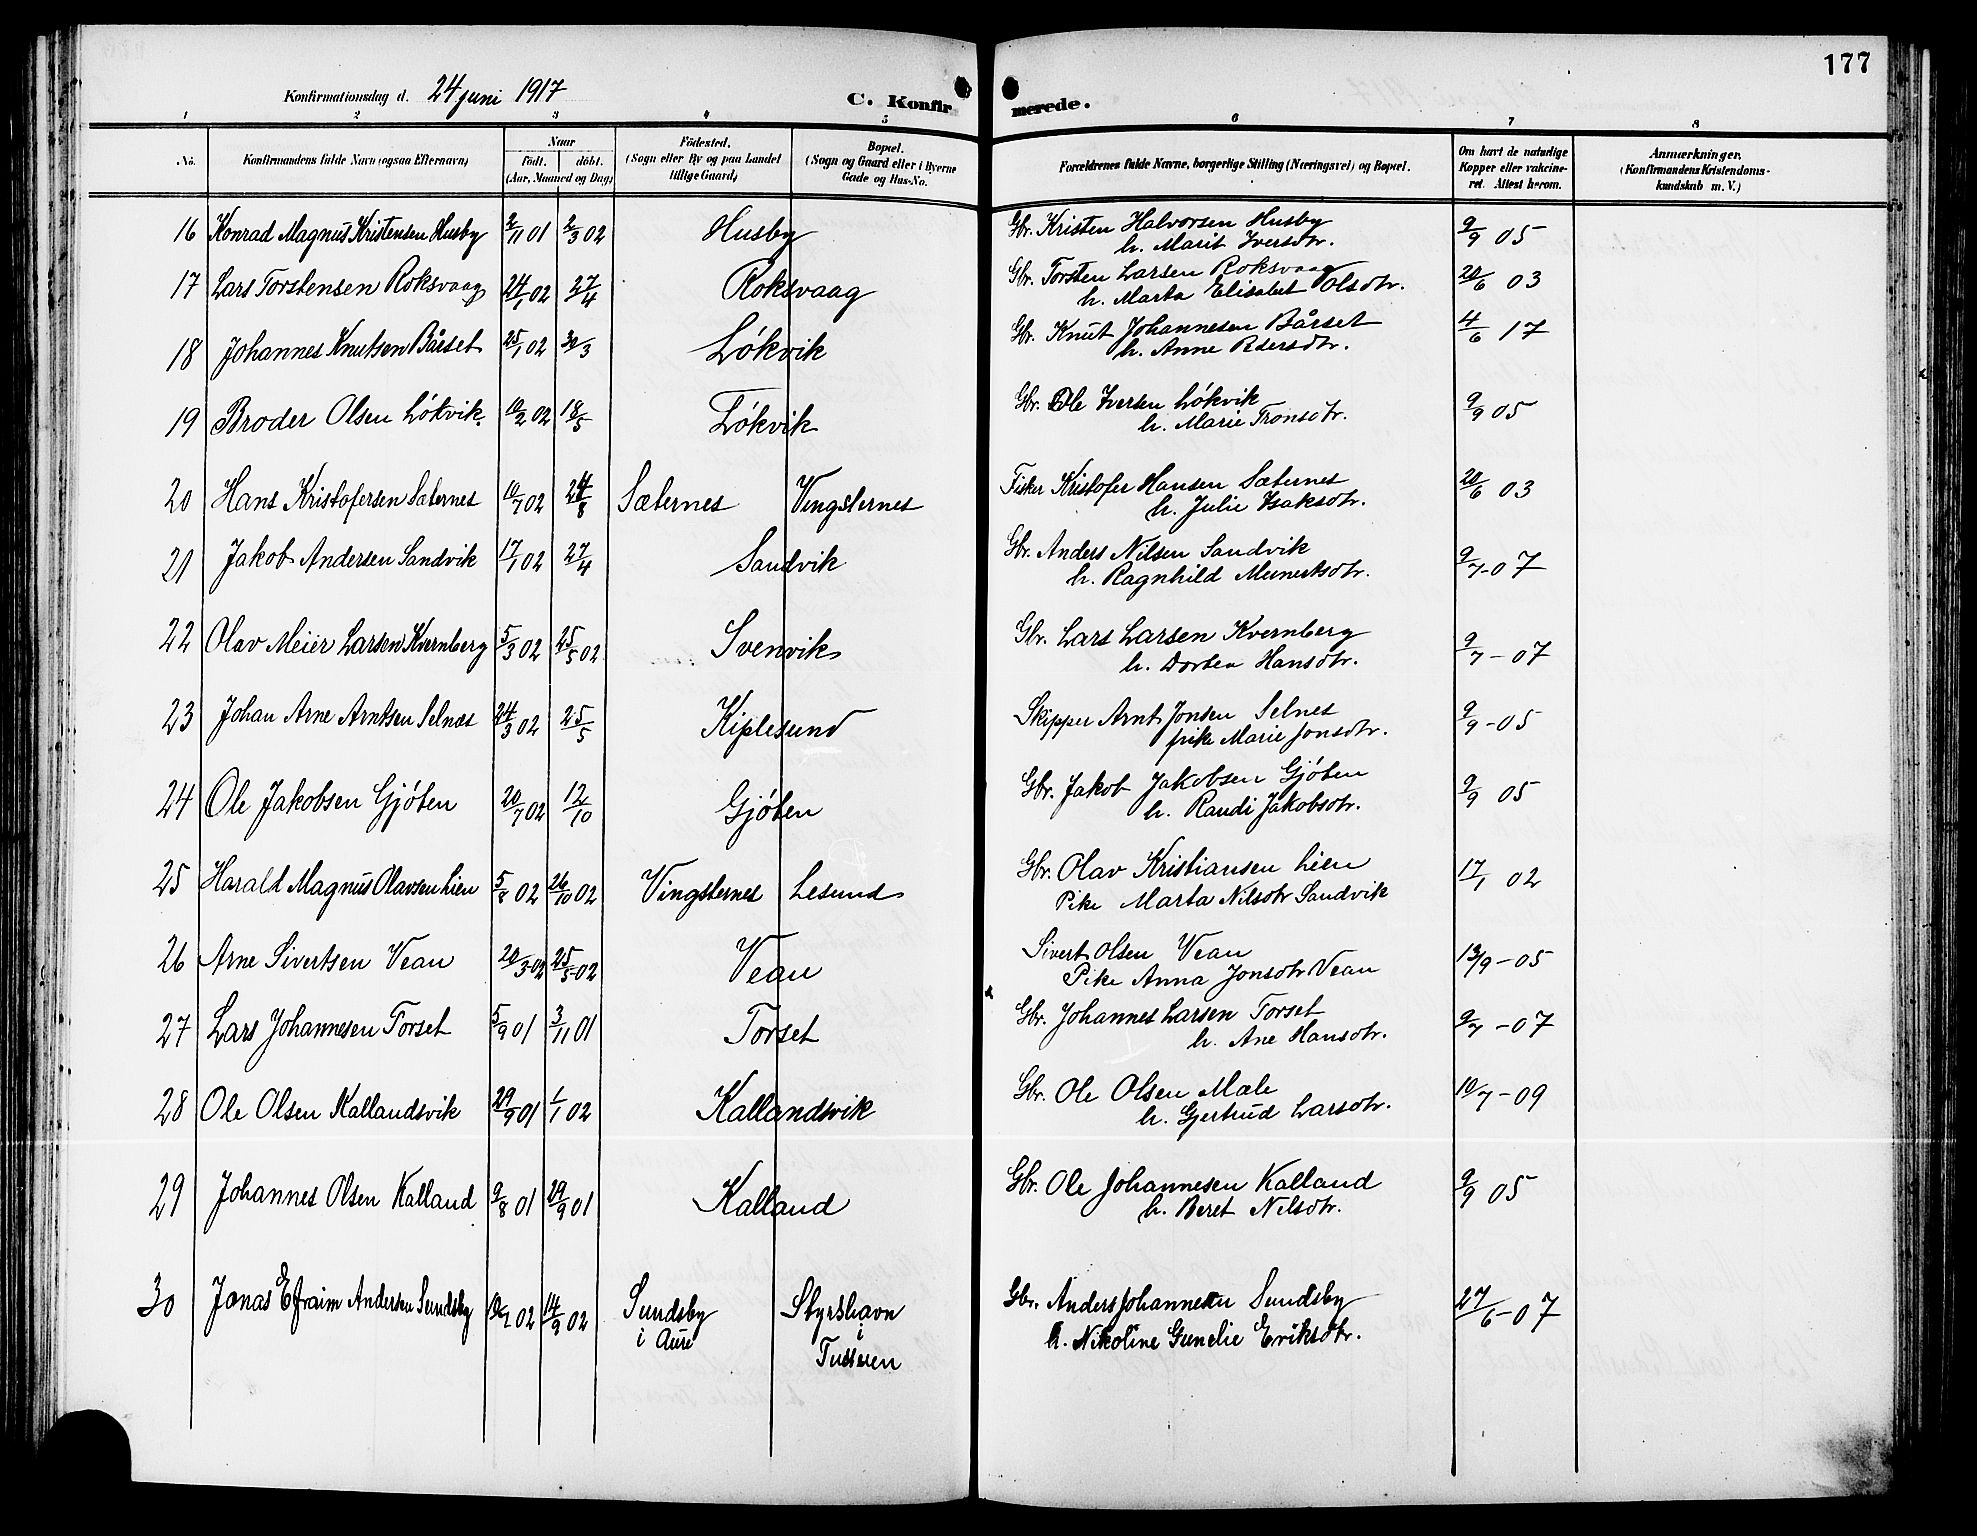 177
Konfirmationsdag d. 24 juni 1917
C. Konfirmerede.
1 2 3 4 5 6 7 8
No. Konfirmandens fulde Navn (ogsaa Efternavn) Naar født. døbt. (Aar, Maaned og Dag) Fødested. (Sogn eller By og paa Landet tillige Gaard) Bopæl. (Sogn og Gaard eller i Byerne Gade og Hus-No. Forældrenes fulde Navne, borgerlige Stilling (Næringsvei) og Bopæl. Om havt de naturlige Kopper eller vaccineret. Attest herom. Anmærkninger. (Konfirmandens Kristendomskundskab m. V.)
16 Konrad Magnus Kristensen Husby 2/11 01 2/3 02 Husby Gbr. Kristen Halvorsen Husby 9/9 05
h. Marit Iversdtr.
17 Lars Torstensen Roksvaag 24/1 02 27/4 Roksvaag Gbr. Torsten Larsen Roksvaag 20/6 03
h. Marta Elisabet Olsdtr.
18 Johannes Knutsen Bårset 25/1 02 30/3 Løkvik Gbr. Knut Johannesen Bårset 4/6 17
h. Anne Pedersdtr.
19 Broder Olsen Løkvik. 10/2 02 18/5 Løkvik Gbr. Ole Iversen Løkvik 9/9 05
h. Marie Tronsdtr.
20 Hans Kristofersen Sæternes 10/7 02 24/8 Sæternes Vingsternes Fisker Kristofer Hansen Sæternes 20/6 03
h. Julie Isaksdtr.
21 Jakob Andersen Sandvik 17/1 02 27/4 Sandvik Gbr. Anders Nilsen Sandvik 9/7-07
h. Ragnhild Meinertsdtr.
22 Olav Meier Larsen Kvernberg 5/3 02 25/5 02 Svenvik Gbr. Lars Larsen Kvernberg 9/7-07
h. Dortea Hansdtr.
23 Johan Arne Arntsen Selnæs 24/3 02 25/5 Kiplesund Skipper Arnt Jonsen Selnes 9/9-05
pike Marie Jonsdtr.
24 Ole Jakobsen Gjøten 20/7 02 12/10 Gjøten Gbr. Jakob Jakobsen Gjøten 9/9 05
h. Randi Jakobsdtr.
25 Harald Magnus Olavsen Lien 5/8 02 26/10 02 Vingsternes Lesund Gbr. Olav Kristiansen Lien 17/1 02
Pike Marta Nilsdtr Sandvik
26 Arne Sivertsen Vean 20/3-02 25/5-02 Vean Sivert Olsen Vean 13/9-05
Pike Anna Jonsdtr Vean
27 Lars Johannesen Torset 5/9 01 3/11 01 Torset Gbr. Johannes Larsen Torset 9/7-07
h. Ane Hansdtr.
28 Ole Olsen Kallandsvik 29/9 01 1/1 02 Kallandsvik Gbr. Ole Olsen Mæle 10/7-09
h. Gjertrud Larsdtr.
29 Johannes Olsen Kalland 9/8 01 29/9 01 Kalland Gbr. Ole Johannesen Kalland 9/9 05
h. Beret Nilsdtr.
30 Jonas Efraim Andersen Sundsby 02 14/9 02 Sundsby i Aure Styrshavn i Tusteren Gbr. Anders Johannesen Sundsby 27/6-07
h. Nikoline Gunelie Eriksdtr.